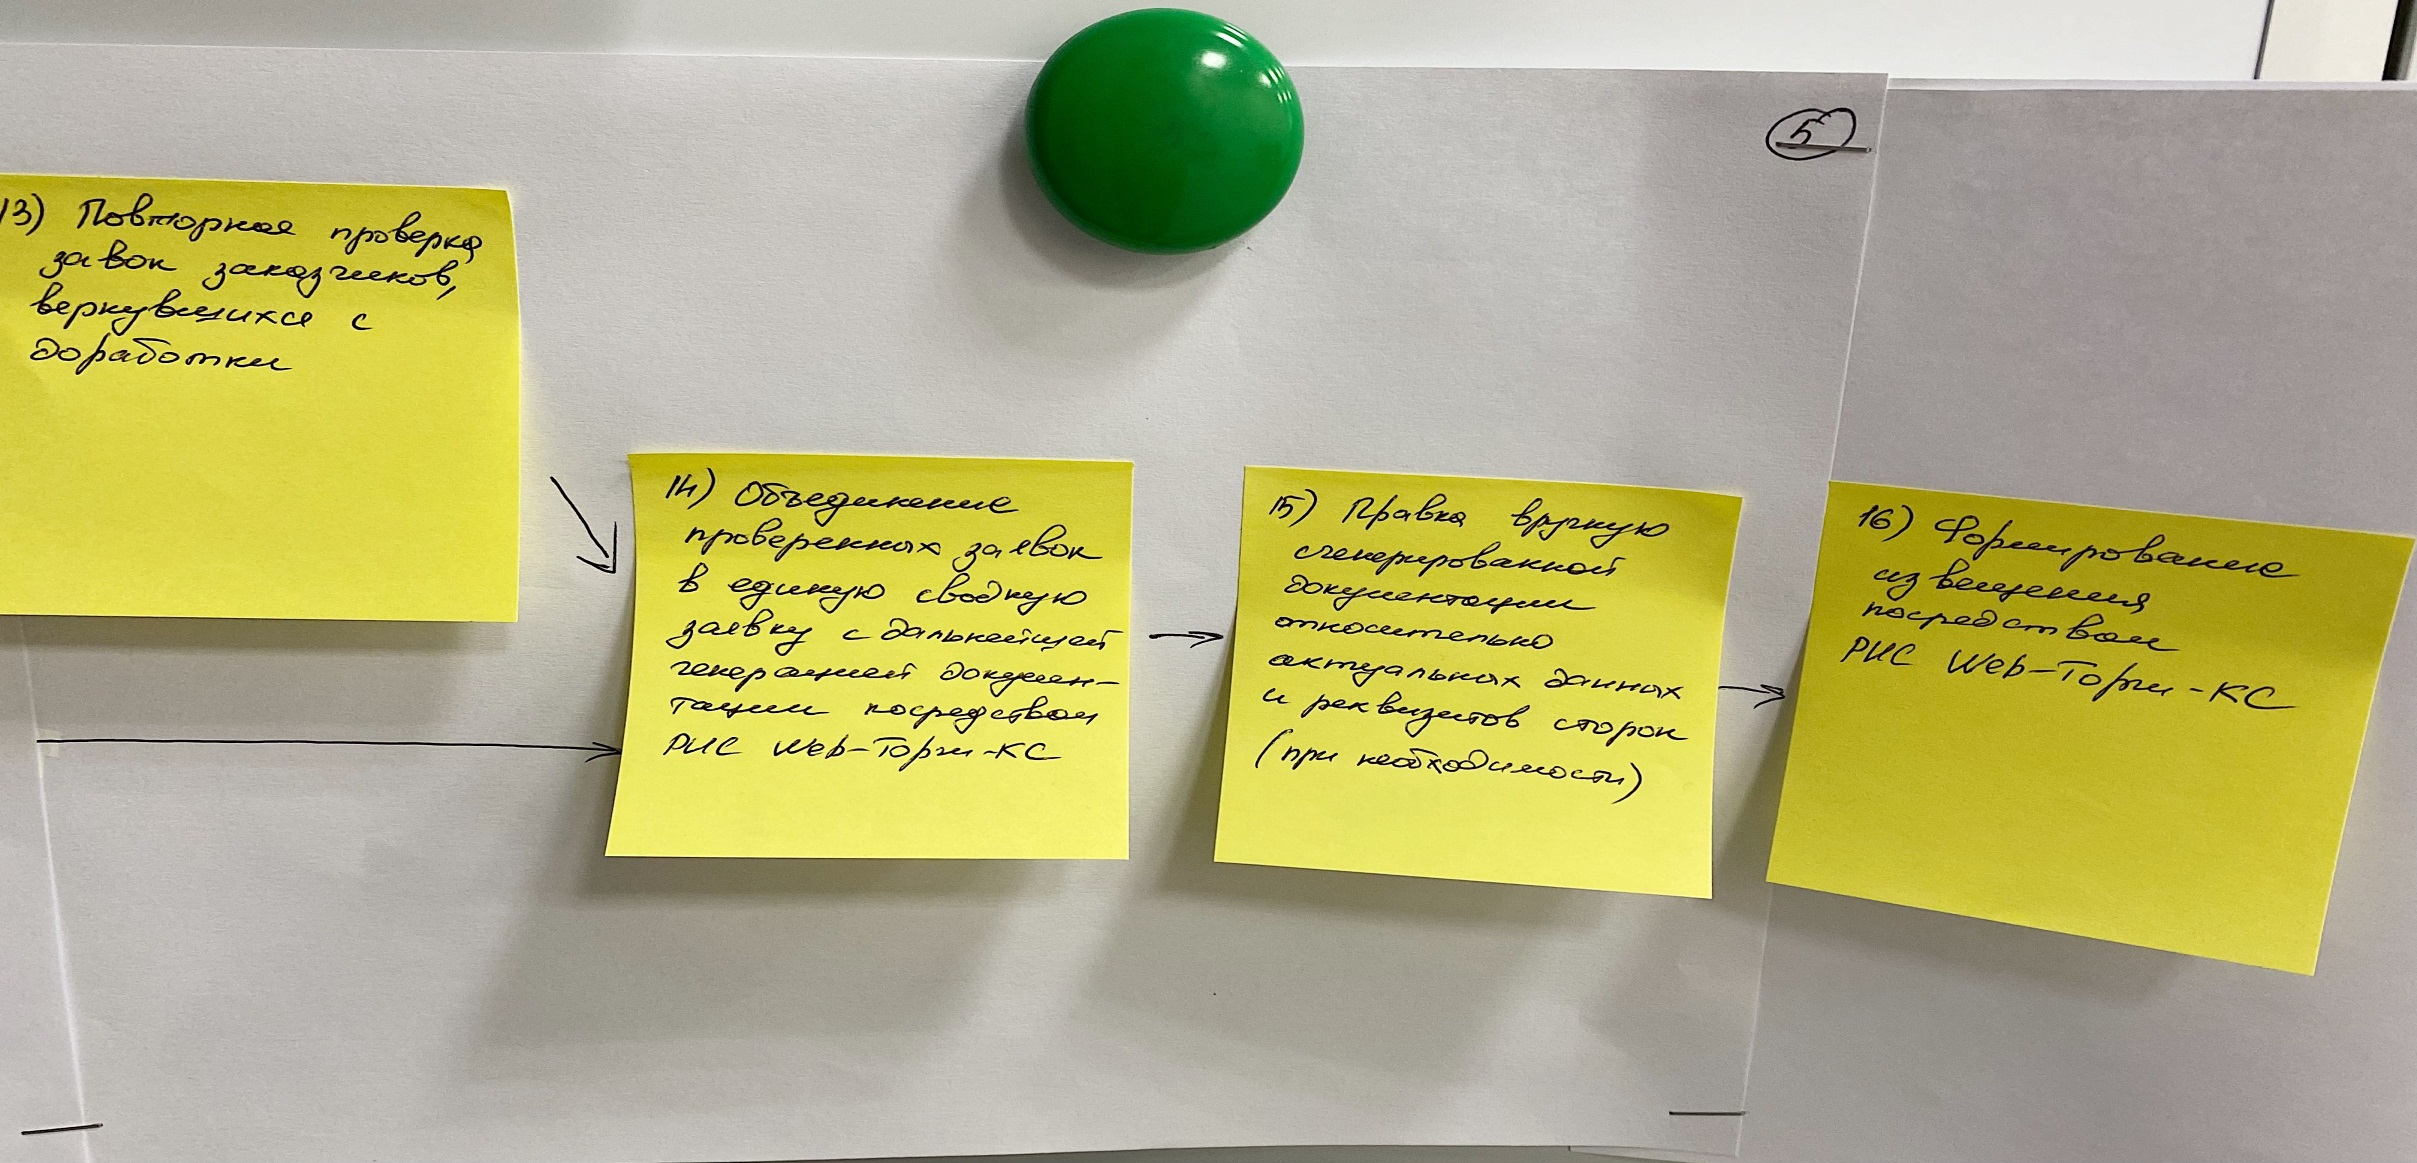 5
13) Повторная проверка
заявок заказчиков,
вернувшихся с
доработки
14) Объединение
проверенных заявок
в единую сводную
заявку с дальнейшей
генерацией докумен-
тации посредством
РИС Web-Торги-КС
15) Правка вручную
сгенерированной
документации
относительно
актуальных данных
и реквизитов сторон
(при необходимости)
16) Формирование
извещения
посредством
РИС Web-Торги-КС